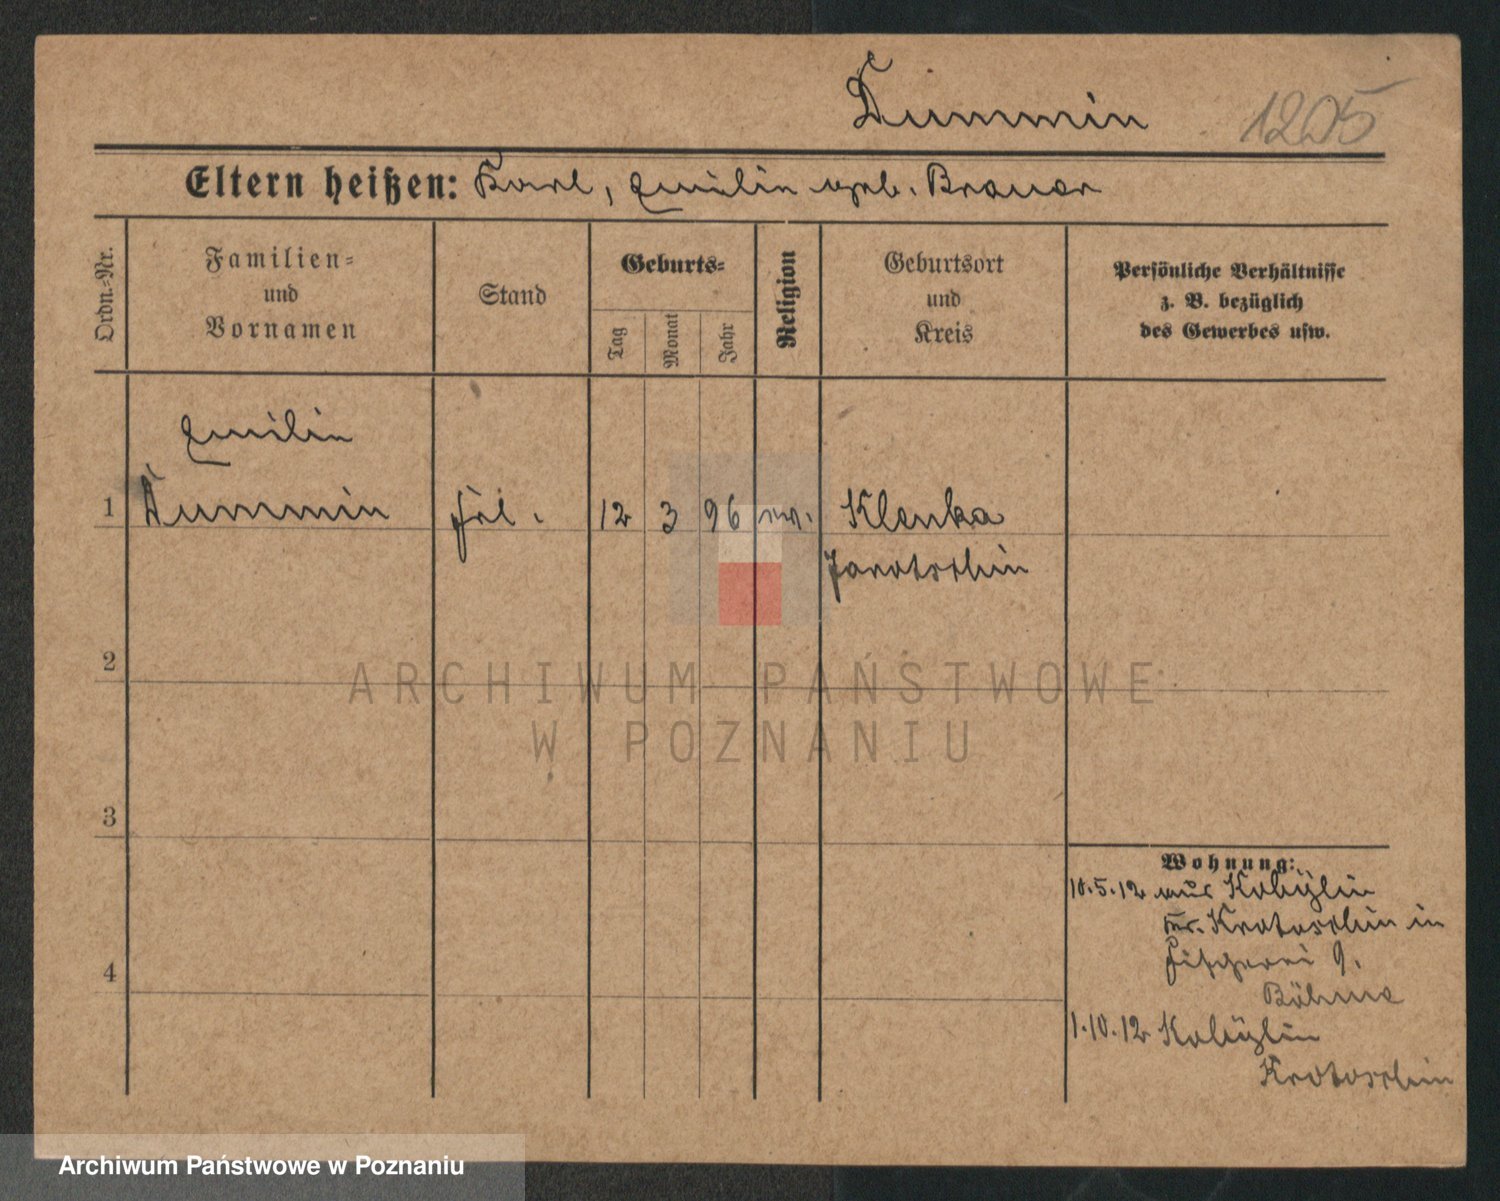 Dummin 1205
Eltern heißen: Karl, Emilie geb. Brauer
Ordn.-Nr.
Familien-
und
Vornamen
Stand
Geburts-
Tag
Monat
Jahr
Religion
Geburtsort
und
Kreis
Persönliche Verhältnisse
z. B. bezüglich
des Gewerbes usw.
Emilie
1 Dummin frl. 12 3 96 ev. Klenka
Jarotschin
2
3
4
Wohnung:
10.5.12 aus Kobylin
Kr. Krotoschin in
Fischerei 9.
Böhme
1.10.12 Kobylin
Krotoschin
ARCHIWUM PAŃSTWOWE
W POZNANIU
Archiwum Państwowe w Poznaniu